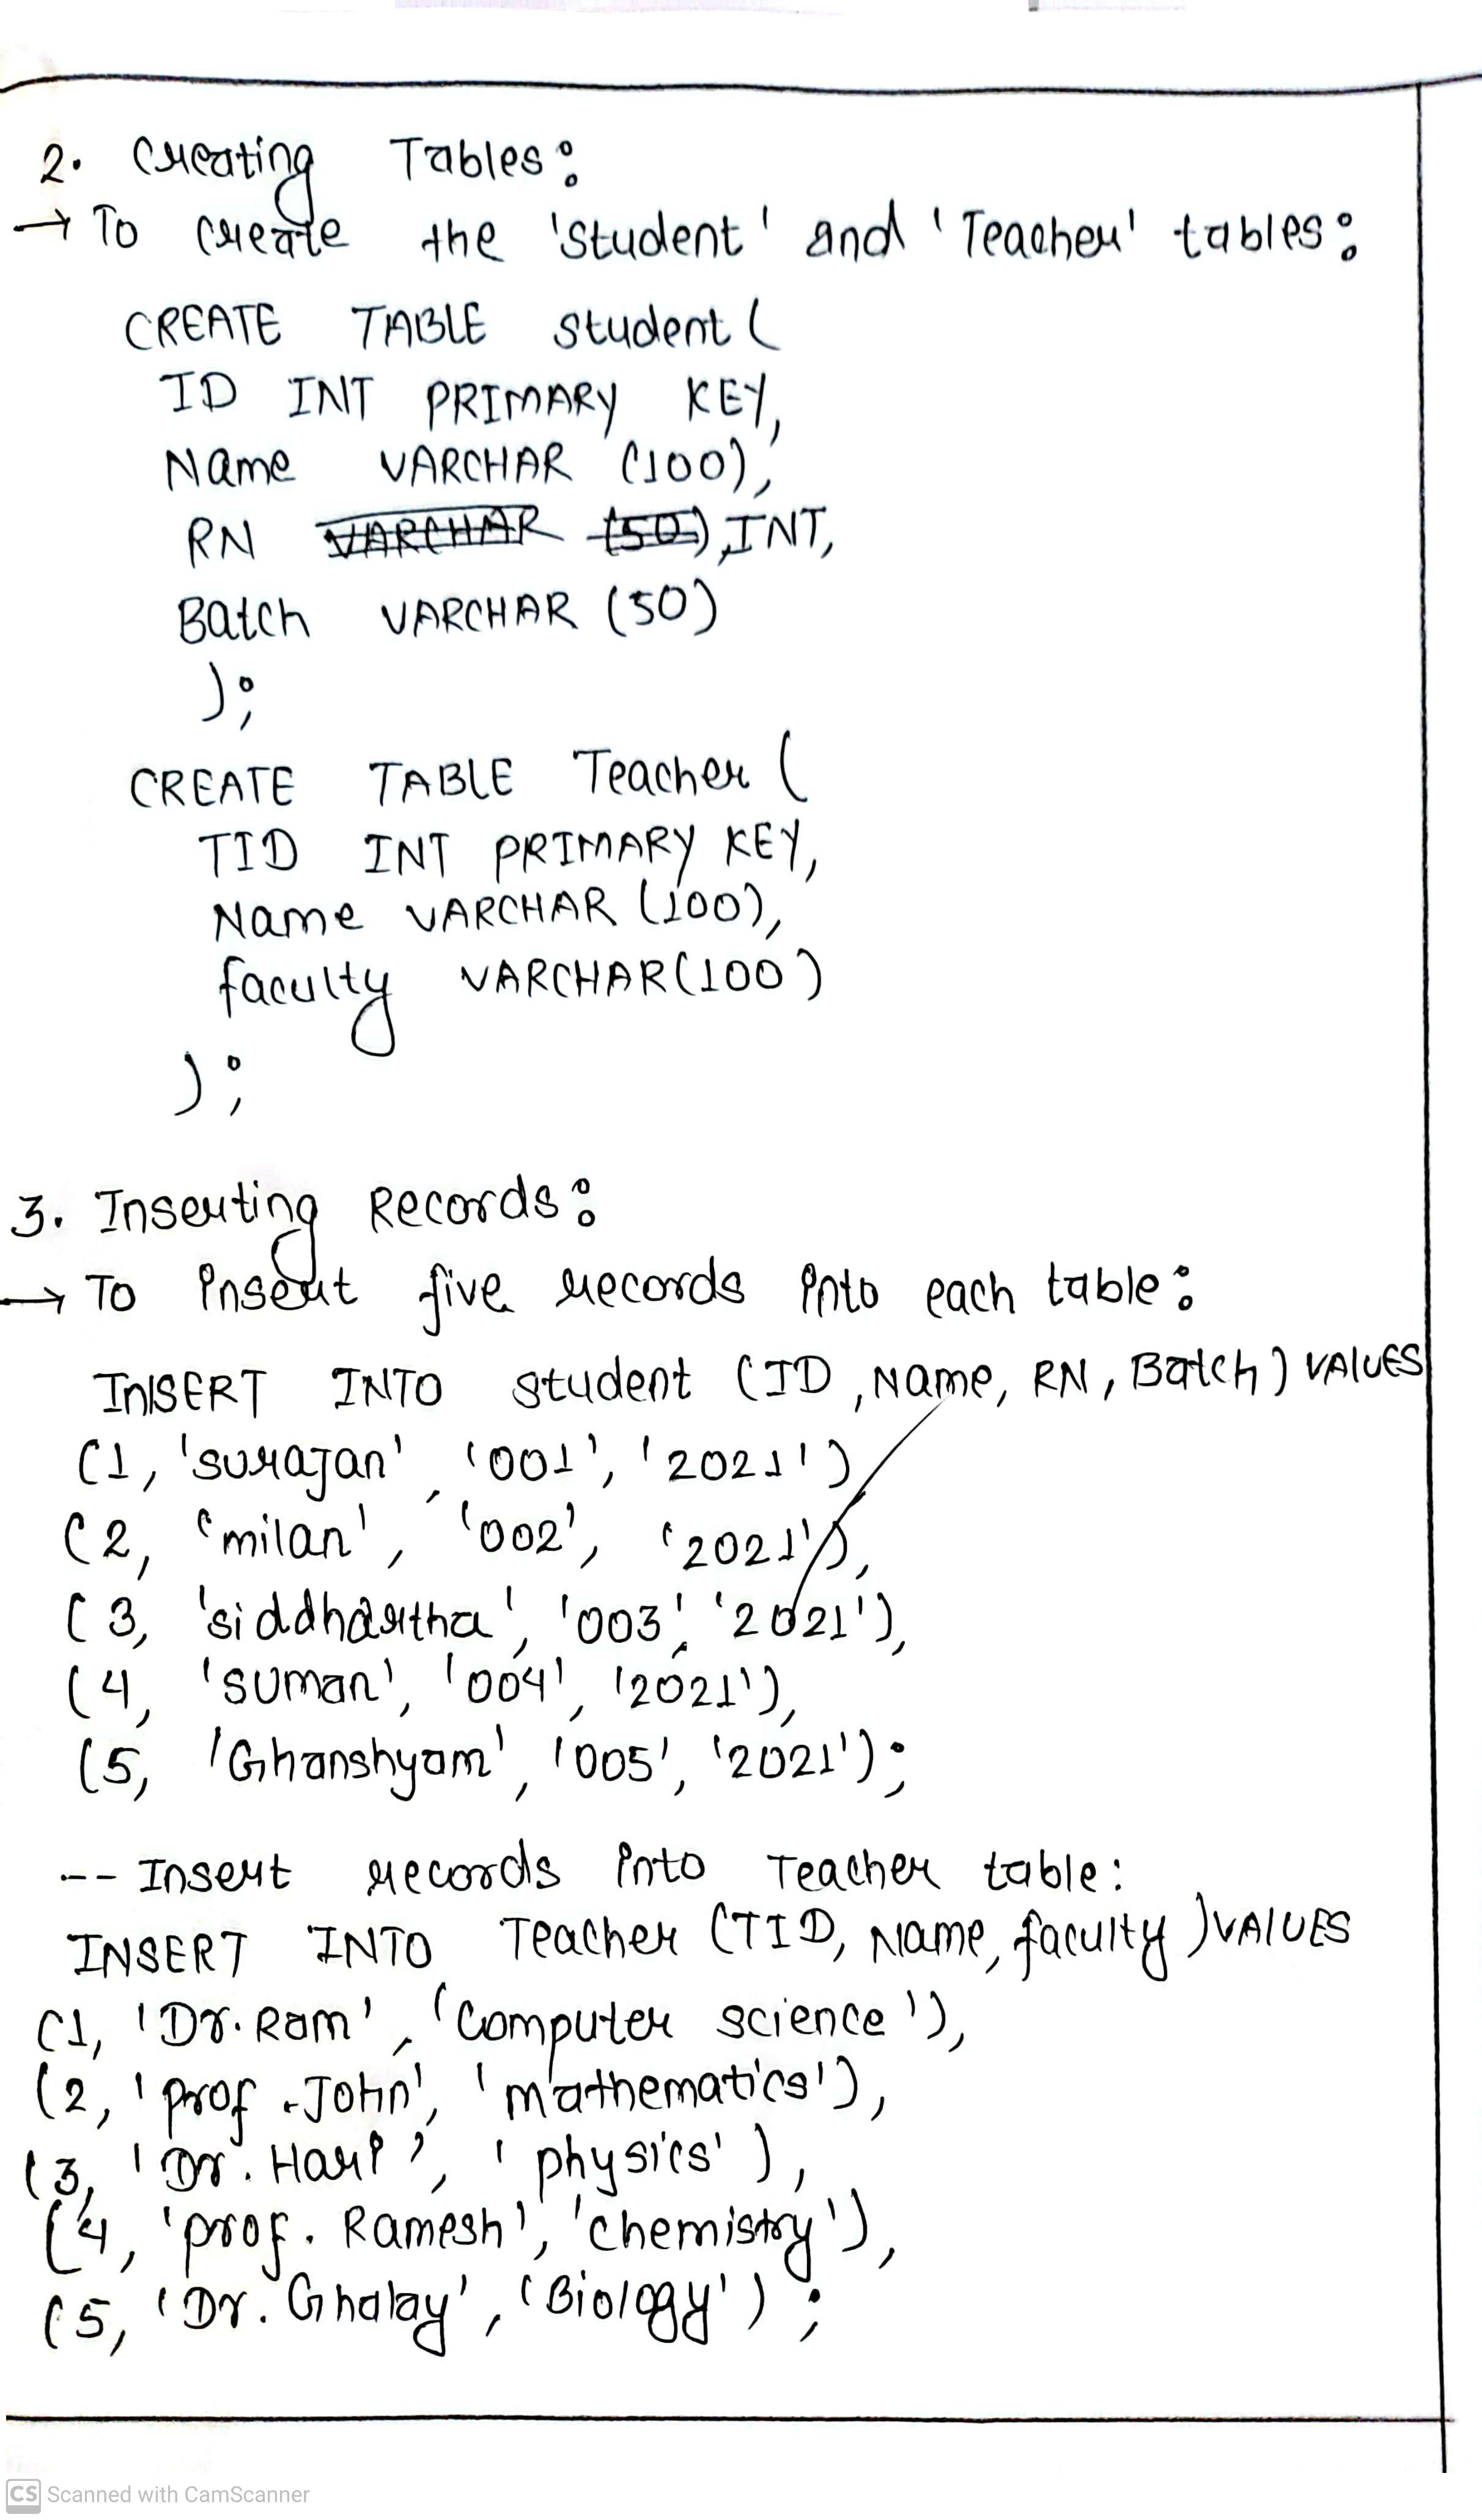 2. Creating Tables:
→ To create the 'student' and 'Teacher' tables:
CREATE TABLE student (
ID INT PRIMARY KEY,
Name VARCHAR (100),
RN VARCHAR (50), INT,
Batch VARCHAR (50)
);
CREATE TABLE Teacher (
TID INT PRIMARY KEY,
Name VARCHAR (100),
faculty VARCHAR (100)
);
3. Inserting Records:
→ To insert five records into each table:
INSERT INTO student (ID, Name, RN, Batch) VALUES
(1, 'surajan', '001', '2021')
(2, 'milan', '002', '2021'),
(3, 'siddhartha', '003', '2021'),
(4, 'suman', '004', '2021'),
(5, 'Ghanshyam', '005', '2021');
-- Insert records into Teacher table:
INSERT INTO Teacher (TID, Name, faculty) VALUES
(1, 'Dr. Ram', 'Computer science'),
(2, 'prof. John', 'mathematics'),
(3, 'Dr. Hari', 'physics'),
(4, 'prof. Ramesh', 'chemistry'),
(5, 'Dr. Ghalay', 'Biology');
CS Scanned with CamScanner